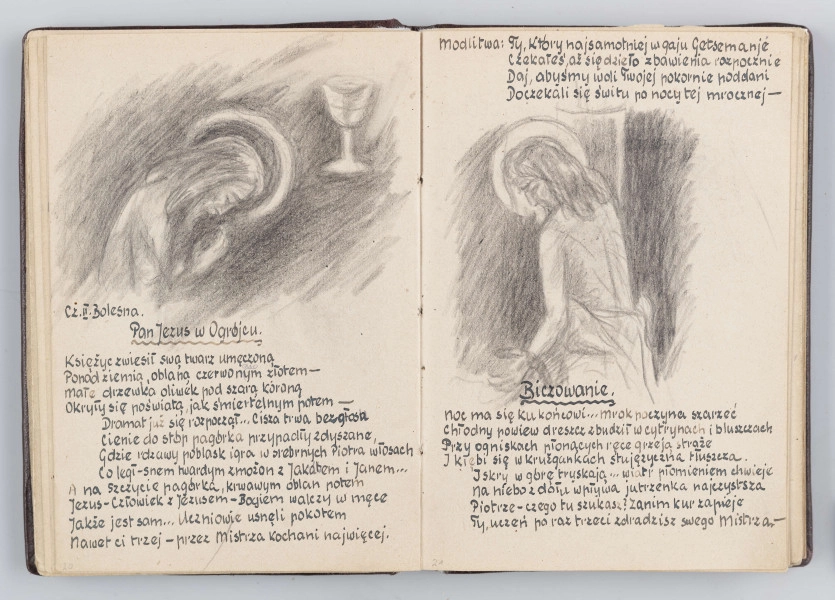 Cz. II. Bolesna.
Pan Jezus w Ogrójcu.
Księżyc zwiesił swą twarz umęczoną
Ponad ziemią, oblaną czerwonym złotem—
małe drzewka oliwek pod szarą koroną
Okryły się poświatą, jak śmiertelnym potem —
Dramat już się rozpoczął... Cisza trwa bezgłosa
Cienie do stóp pagórka przypadły zdyszane,
Gdzie rdzawy poblask igra w srebrnych Piotra włosach
Co legł-snem twardym zmożon z Jakóbem i Janem...
A na szczycie pagórka, krwawym oblan potem
Jezus-Człowiek z Jezusem-Bogiem walczy w męce
Jakże jest sam... Uczniowie usnęli pokotem
Nawet ci trzej – przez Mistrza kochani najwięcej.
Modlitwa: Ty, który najsamotniej w gaju Getsemanje
Czekałeś, aż się dzieło zbawienia rozpocznie
Daj, abyśmy woli Twojej pokornie poddani
Doczekali się świtu po nocy tej mrocznej—
Biczowanie.
Noc ma się ku końcowi... mrok poczyna szarzeć
Chłodny powiew dreszcz zbudził w cytrynach i bluszczach
Przy ogniskach płonących ręce grzeją straże
I kłębi się w krużgankach stujęzyczna tłuszcza.
Iskry w górę tryskają... wiatr płomieniem chwieje
Na niebo z dołu wpływa jutrzenka najczystsza
Piotrze-czego tu szukasz? zanim kur zapieje
Ty, uczeń po raz trzeci zdradzisz swego Mistrza,—